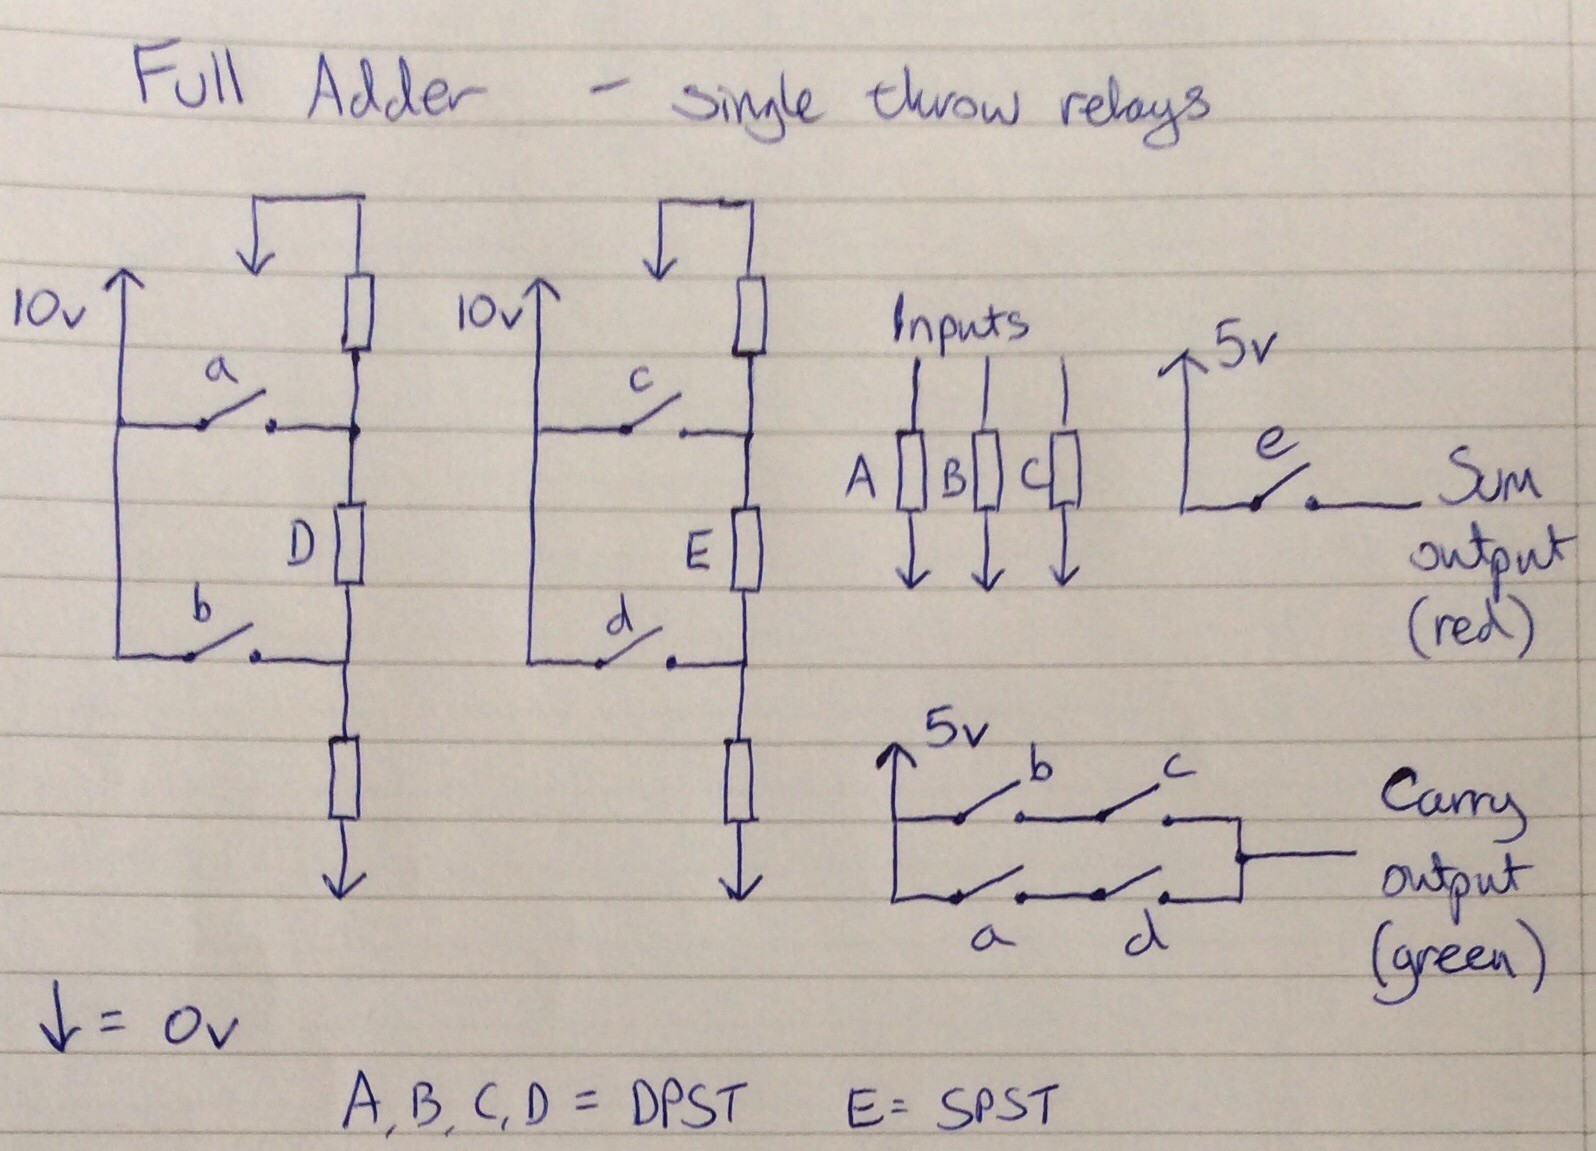 Full Adder - single throw relays
10v
a
D
b
10v
c
E
d
Inputs
A B C
5v
e
Sum
output
(red)
5v
b c
a d
Carry
output
(green)
↓ = 0v
A, B, C, D = DPST E = SPST